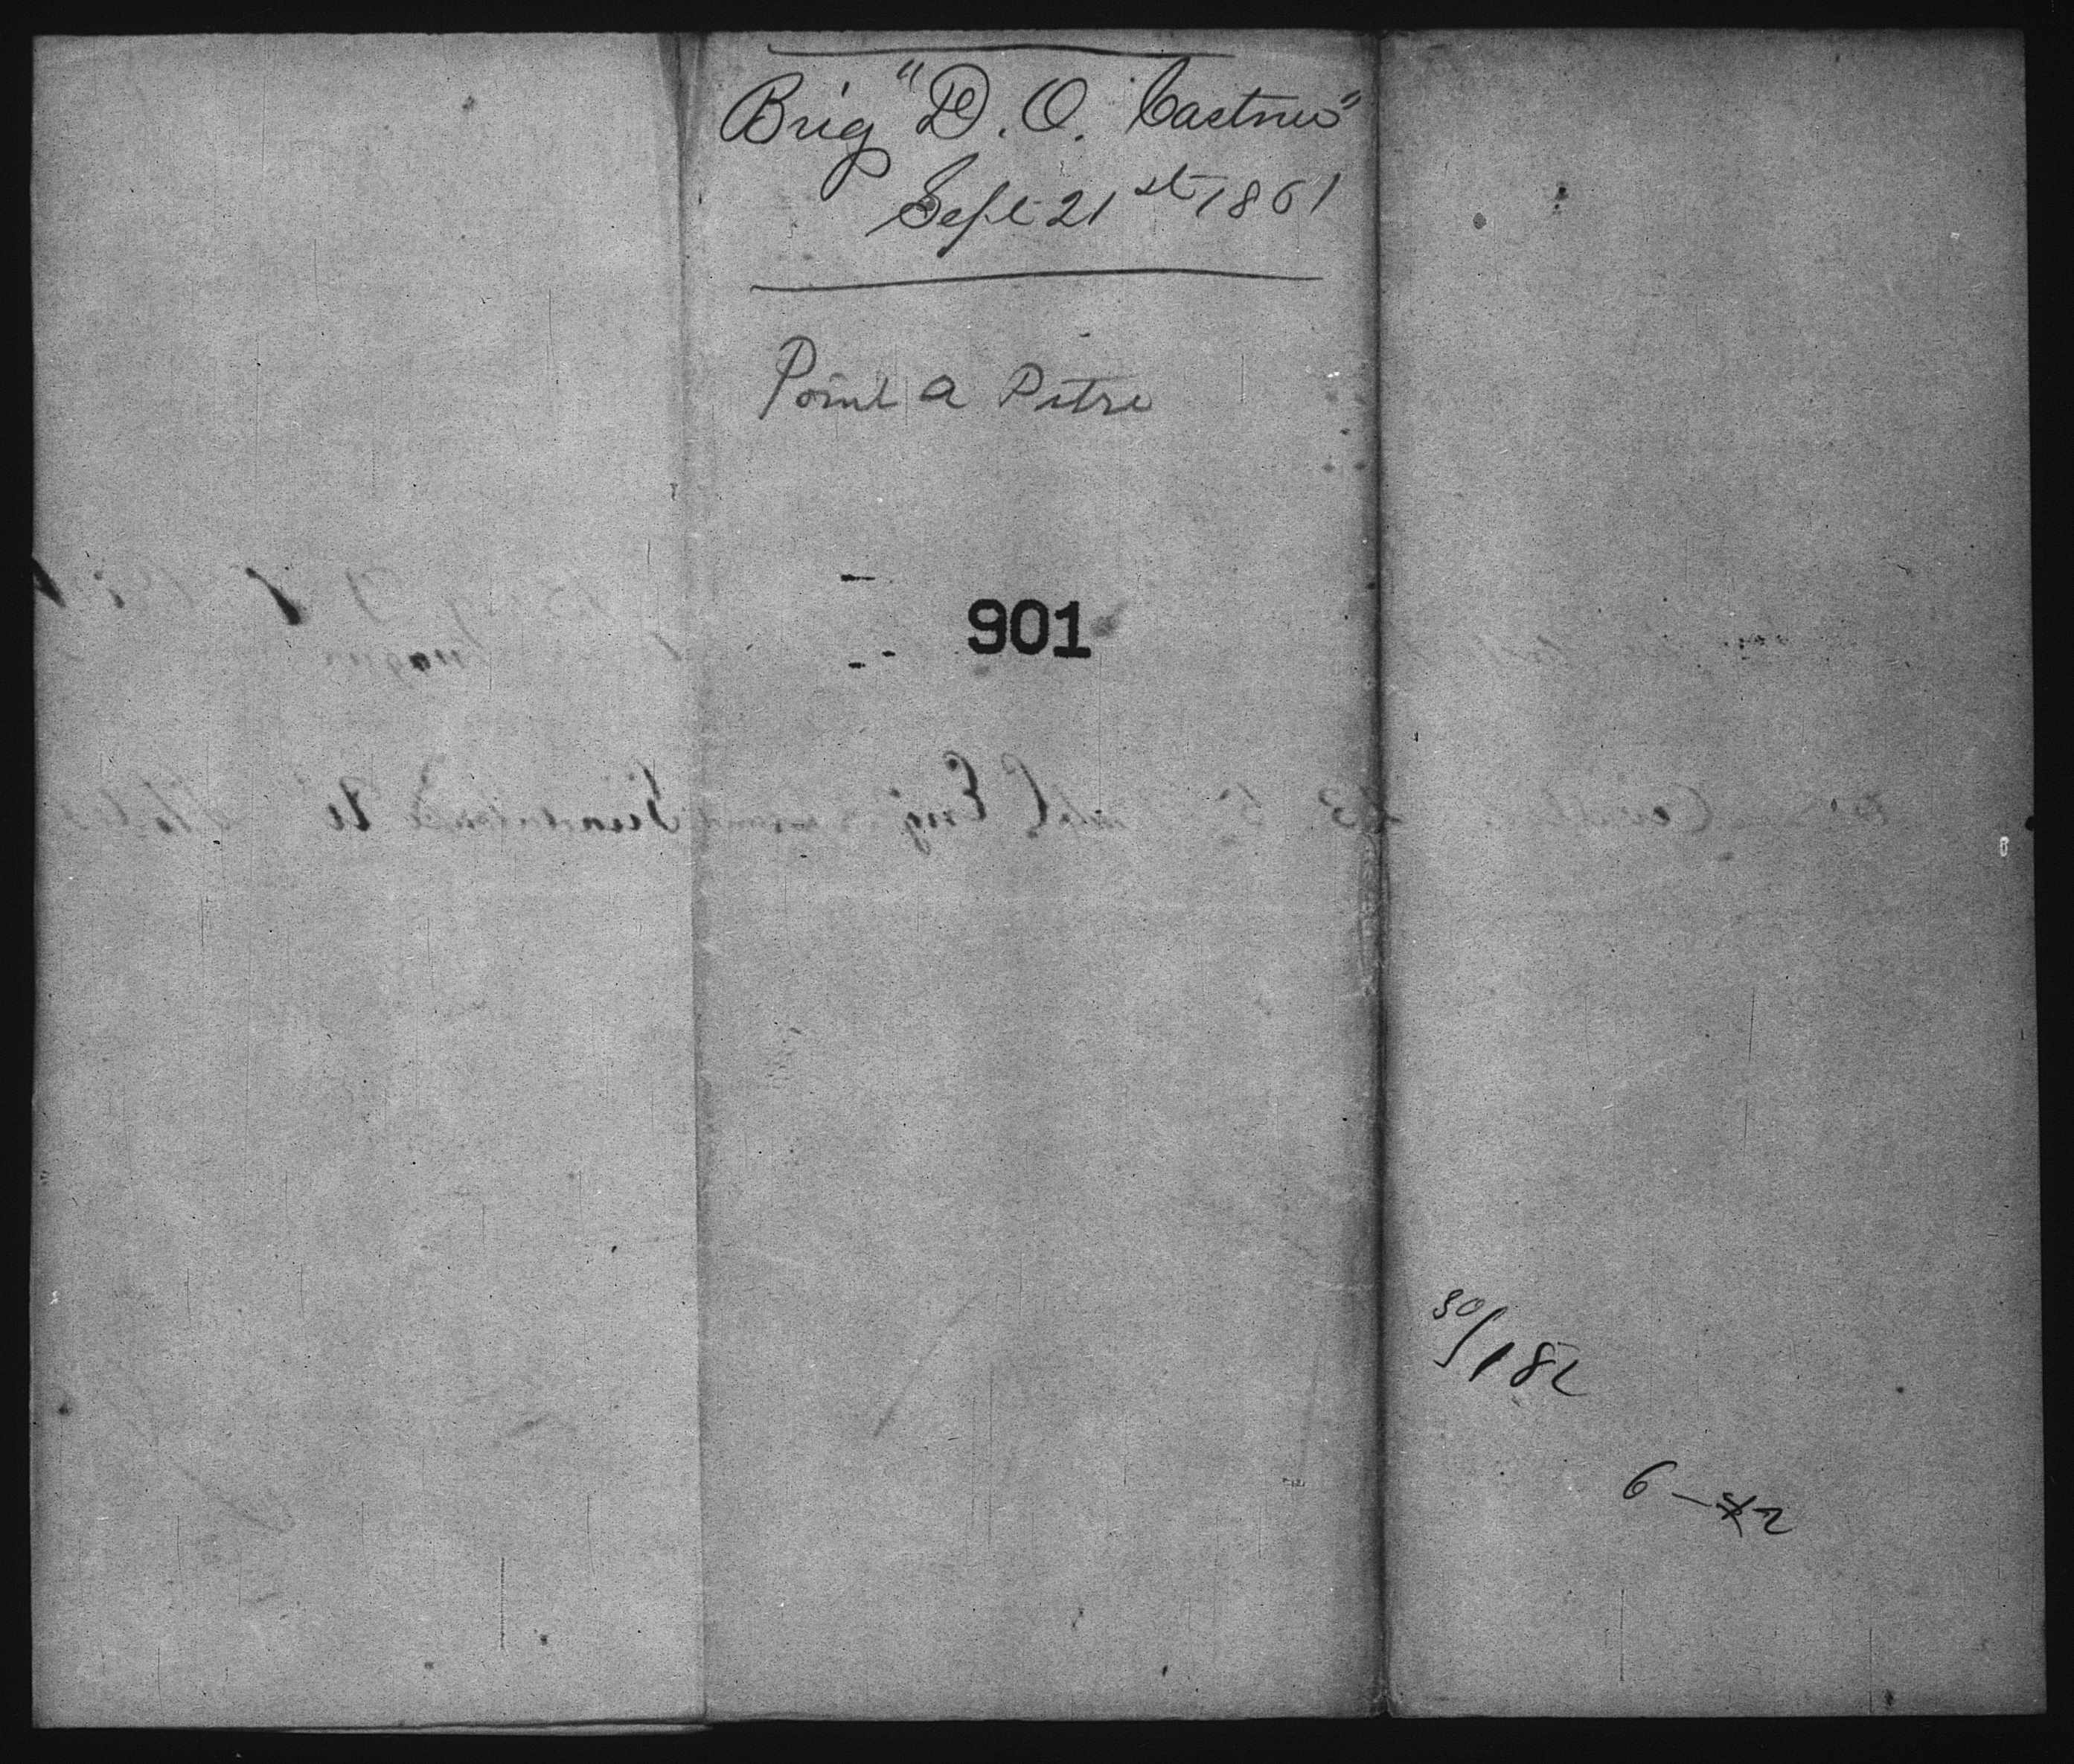 Brig "D. O. Castner"
Sept 21st 1861
Point a Pitre
901
30/182
6 — 2